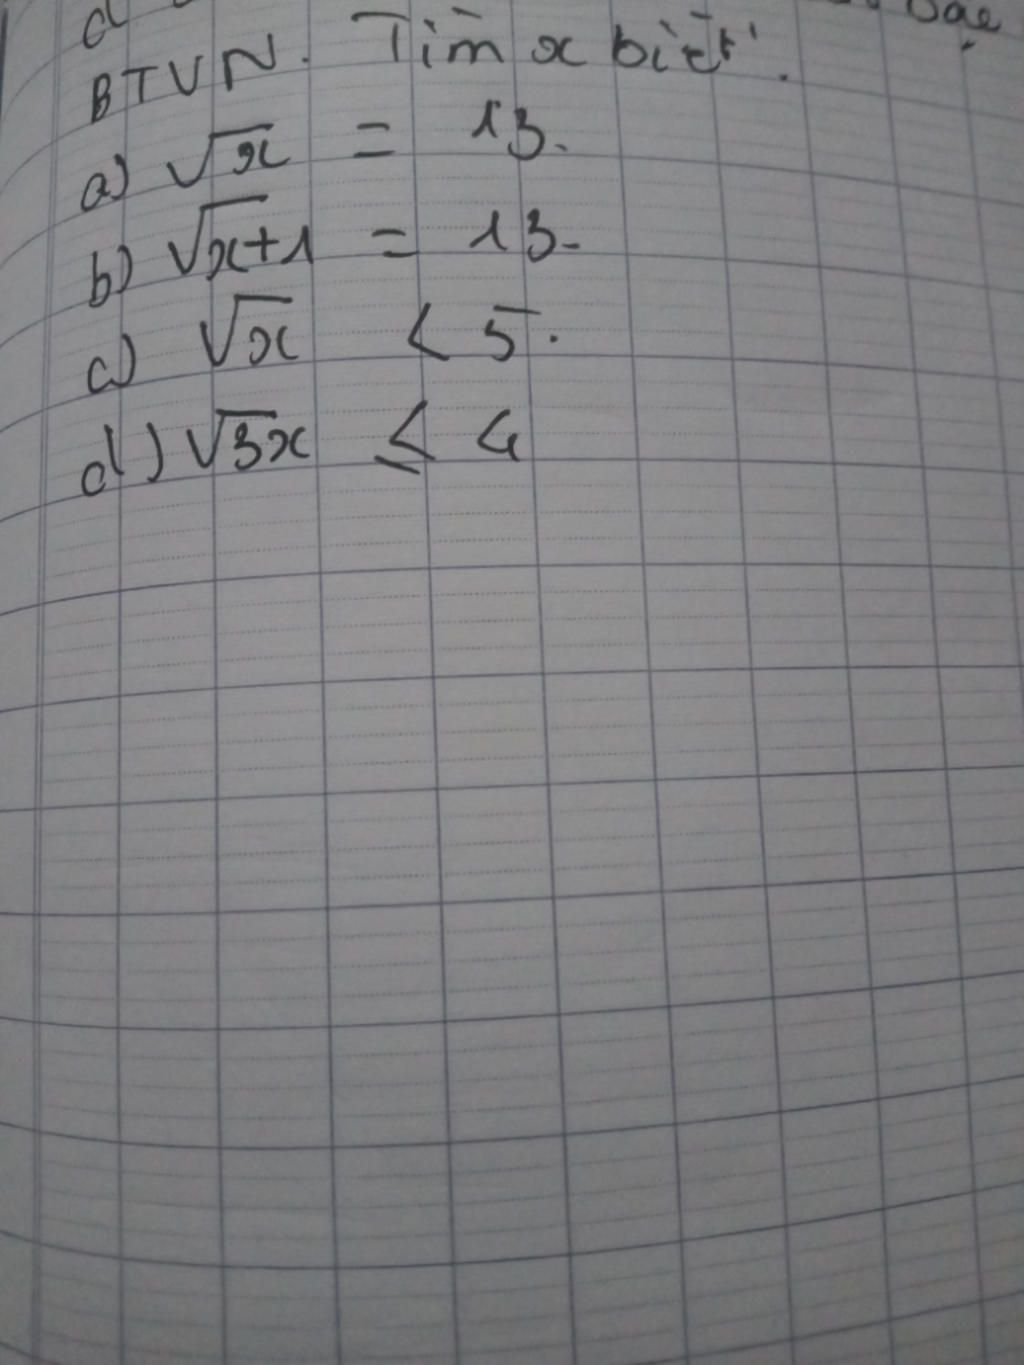 d
BTVN. Tìm x biết.
a) √x = 13.
b) √x+1 = 13.
c) √x < 5.
d) √3x ≤ 4